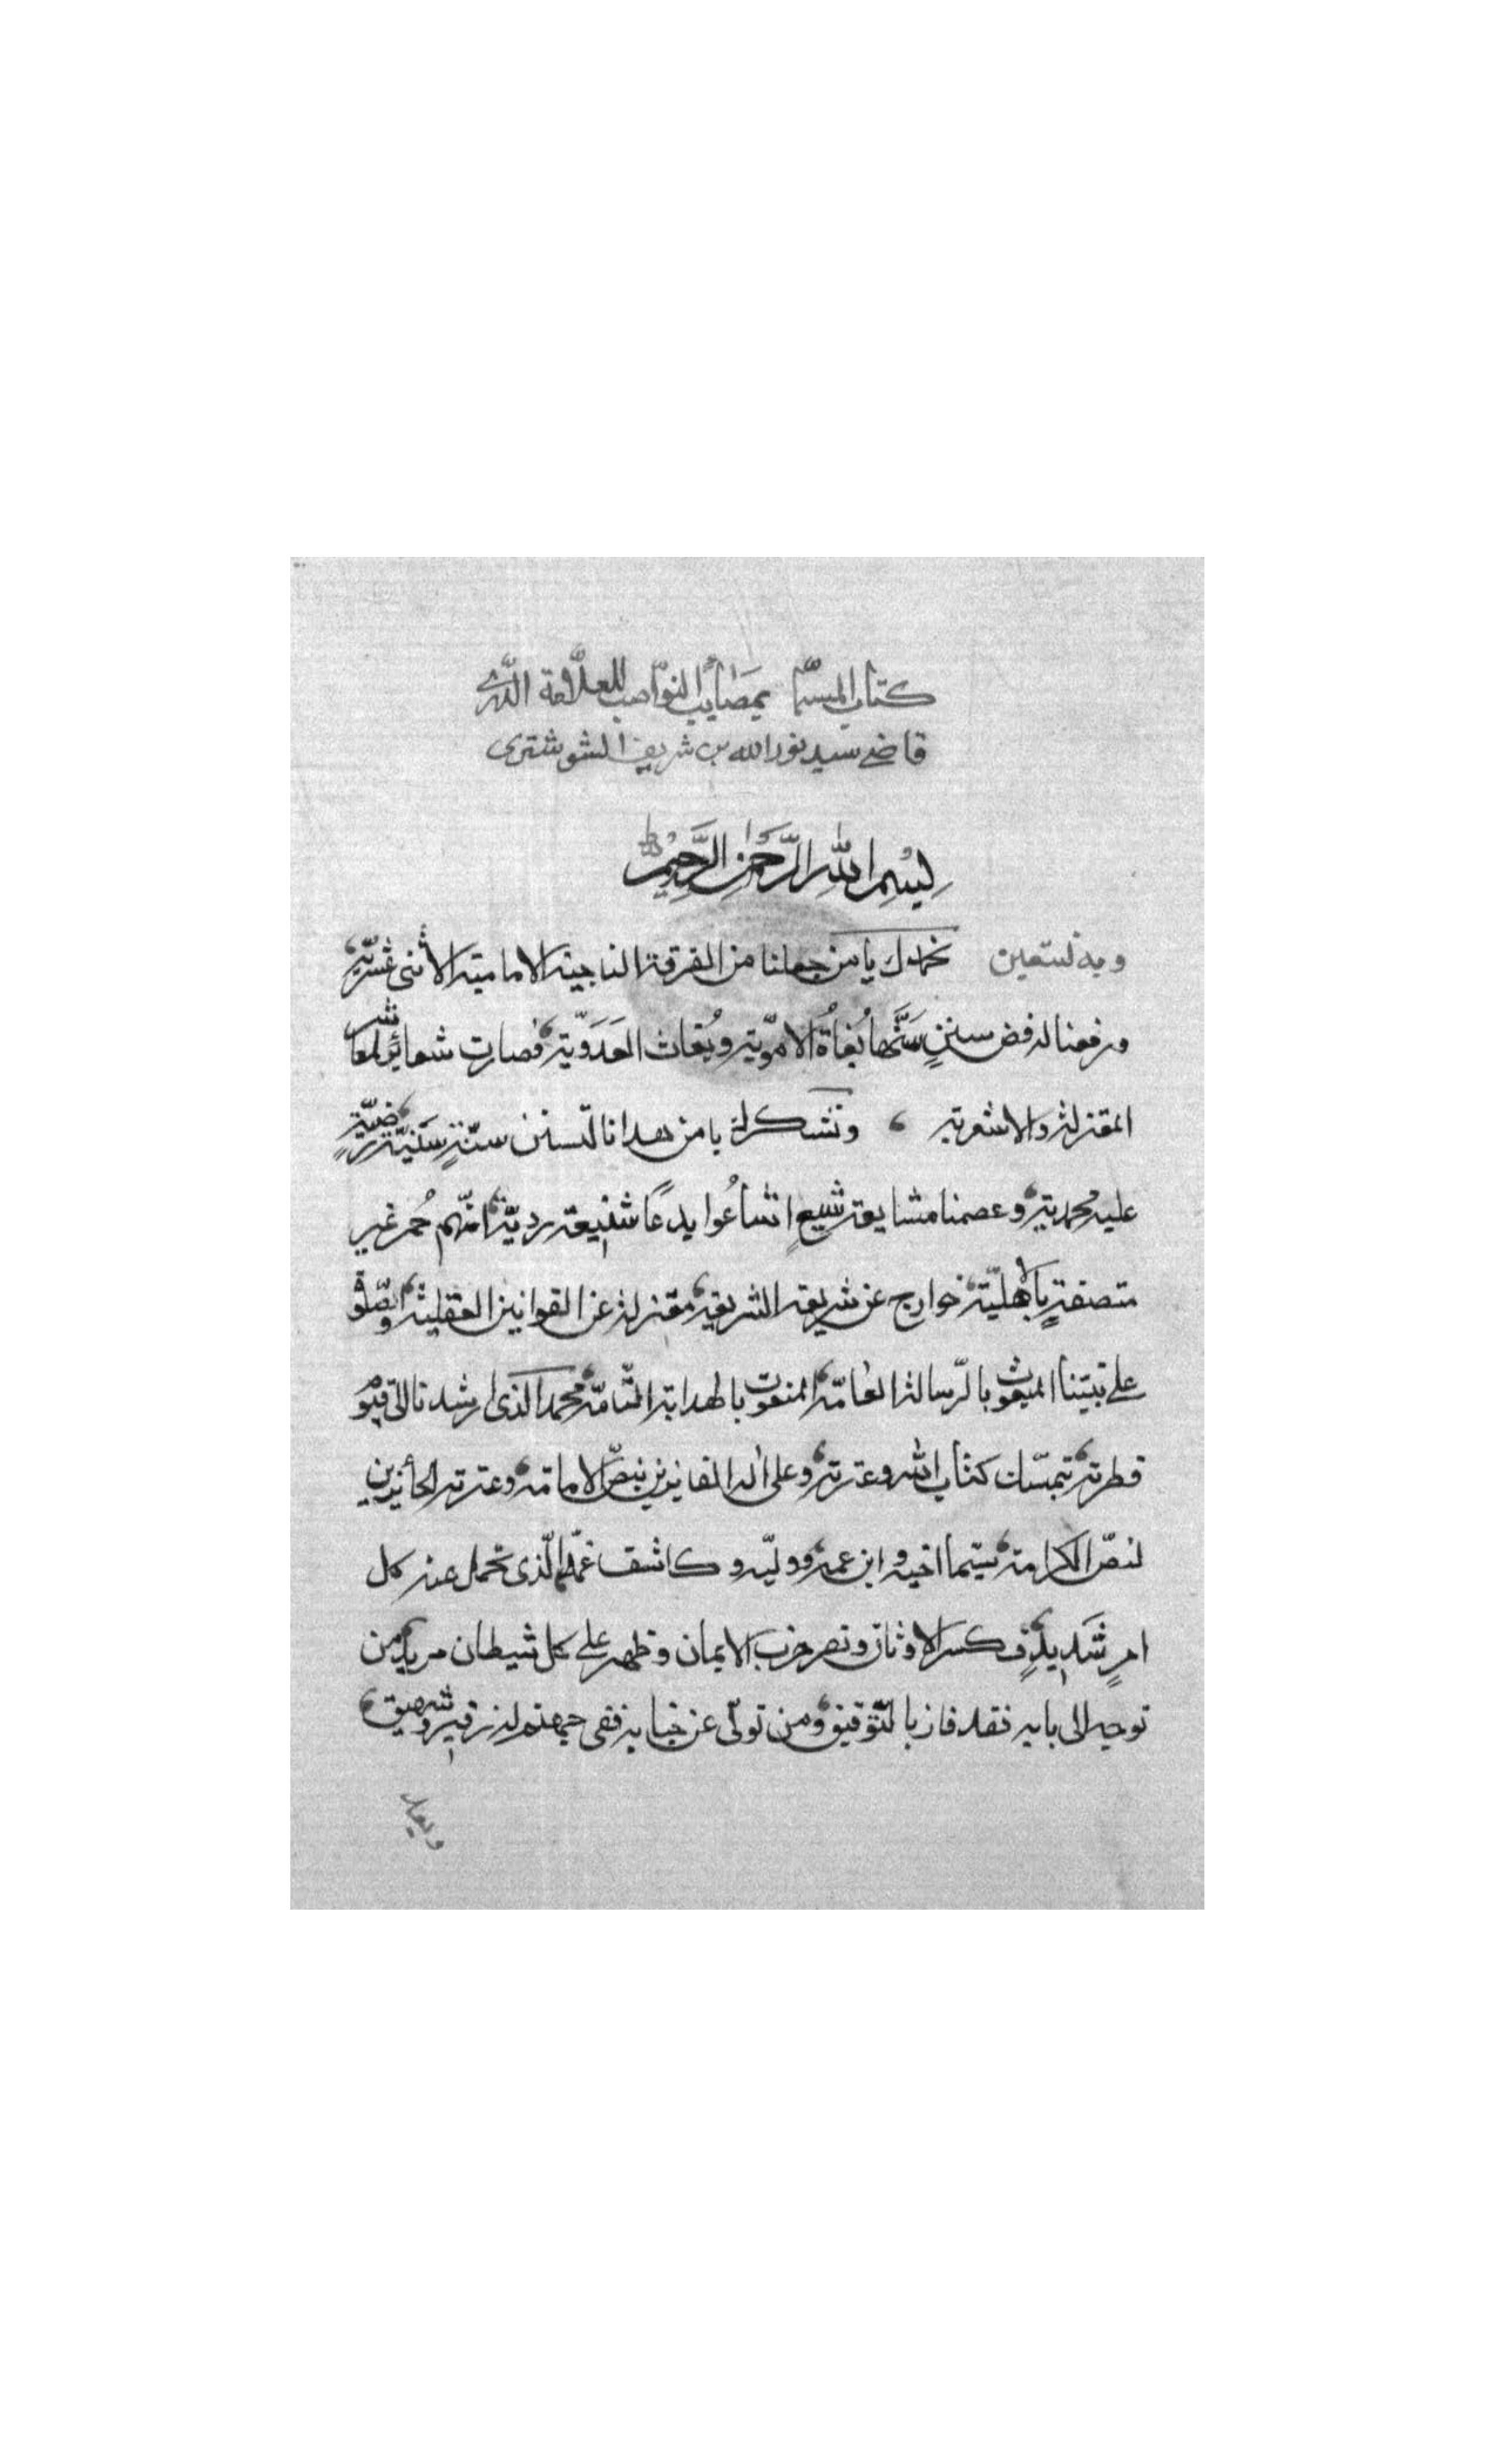 كتاب المسمّا بمصائب النواصب للعلّامة
قاضي سيد نور الله بن شريف الشوشتري
بسم الله الرّحمن الرّحيم
وبه نستعين نحمدك يا من جعلنا من الفرقة الناجية الامامية الاثنى عشريّة
ورفعنا لرفض سننٍ سَنَّها بُغاةُ الامويّة وبُغاث العَدَويّة فصارت شعائر لمعاشر
المعتزلة والاشعرية ونشكرك يا من هدانا لتسنن سنّةٍ سَنيّةٍ رضيّةٍ
علية محمدية وعصمنا مشايعة شيعٍ اشاعُوا بدعًا شنيعة رديّة انّهم حُمر غير
متصفةٍ بالاهليّة خوارج عن شريعة الشريعة معتزلة عن القوانين العقلية ونصلّى
على نبيّنا المبعوث بالرّسالة العامّة المنعوت بالهداية التّامّة محمد الذى ارشدنا الى
فطرته بتمسّك كتاب الله وعترته وعلى اله الفائزين بنصّ الامامة وعترته الحائزين
لنصّ الكرامة سيّما اخيه وابن عمه ووليّه وكاشف غمّه الّذى تحمل عنه كل
امرٍ شَديدٍ فى كسر الاوثان ونصر حزب الايمان وظهر على كل شيطان مريد من
توجه الى بابه فقد فاز بالتّوفيق ومن تولّى عن جنابه ففى جهنم له زفير وشهيق
وبعد